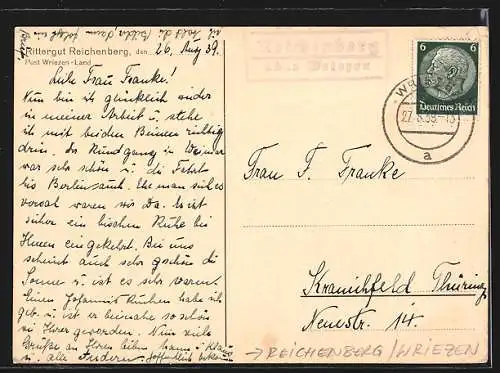 Rittergut Reichenberg, den 26. Aug 39.
Post Wriezen-Land
Liebe Frau Franke!
Nun bin ich glücklich wieder
in meiner Arbeit u. stehe
ich mit beiden Beinen richtig
drin. Der Rundgang in Weimar
war sehr schön u. die Fahrt
bis Berlin auch. Ehe man sich's
versah waren wir da. Es ist
sicher ein bischen Ruhe bei
Ihnen eingekehrt. Bei uns
scheint auch sehr schön die
Sonne u. ist es sehr warm.
Einen Johannis Kuchen habe ich
geb. u. ist er beinahe so schön
wie Ihrer geworden. Nun viele
Grüße an Ihren lieben Mann
u. alle Anderen
Reichenberg
6 6
Deutsches Reich
27.8.39
a
Frau F. Franke
Kranichfeld Thüring.
Neuestr. 14.
→ REICHENBERG/WRIEZEN